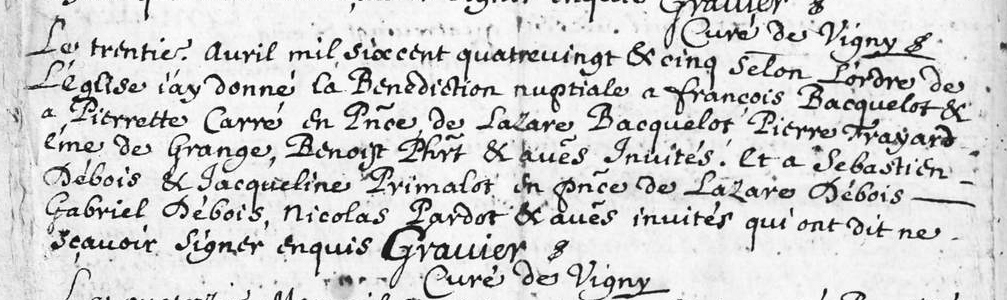 Gravier
Curé de Vigny
Le trentie. Avril mil sixcent quatrevingt & cinq selon L'ordre de
L'église i'ay donné la Benediction nuptiale a françois Bacquelot &
a Pierrette Carré en Pnce de Lazare Bacquelot Pierre Frayard
éme de Grange, Benoist Phrt & aues Invités. Et a Sebastien
Débois & Jacqueline Primalot en pnce de Lazare Débois
Gabriel Débois, Nicolas Pardot & aues invités qui ont dit ne
sçavoir signer enquis Gravier
Curé de Vigny